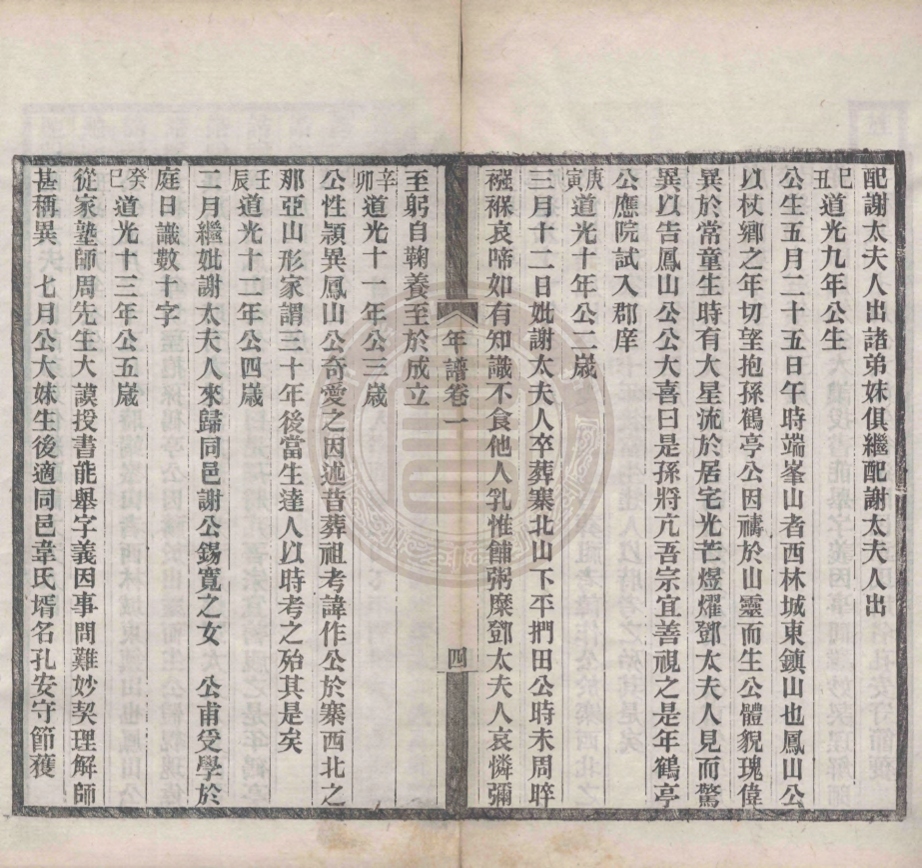 配謝太夫人出諸弟妹俱繼配謝太夫人出
己丑道光九年公生
公生五月二十五日午時端峯山者西林城東鎮山也鳳山公
以杖鄉之年切望抱孫鶴亭公因禱於山靈而生公體貌瑰偉
異於常童生時有大星流於居宅光芒煜燿鄧太夫人見而驚
異以告鳳山公公大喜曰是孫將亢吾宗宜善視之是年鶴亭
公應院試入郡庠
庚寅道光十年公二歲
三月十二日妣謝太夫人卒葬寨北山下平捫田公時未周晬
襁褓哀啼如有知識不食他人乳惟餔粥糜鄧太夫人哀憐彌
年譜卷一
四
至躬自鞠養至於成立
辛卯道光十一年公三歲
公性穎異鳳山公奇愛之因述昔葬祖考諱作公於寨西北之
那亞山形家謂三十年後當生達人以時考之殆其是矣
壬辰道光十二年公四歲
二月繼妣謝太夫人來歸同邑謝公錫寬之女　公甫受學於
庭日識數十字
癸巳道光十三年公五歲
從家塾師周先生大謨授書能舉字義因事問難妙契理解師
甚稱異　七月公大妹生後適同邑韋氏壻名孔安守節獲